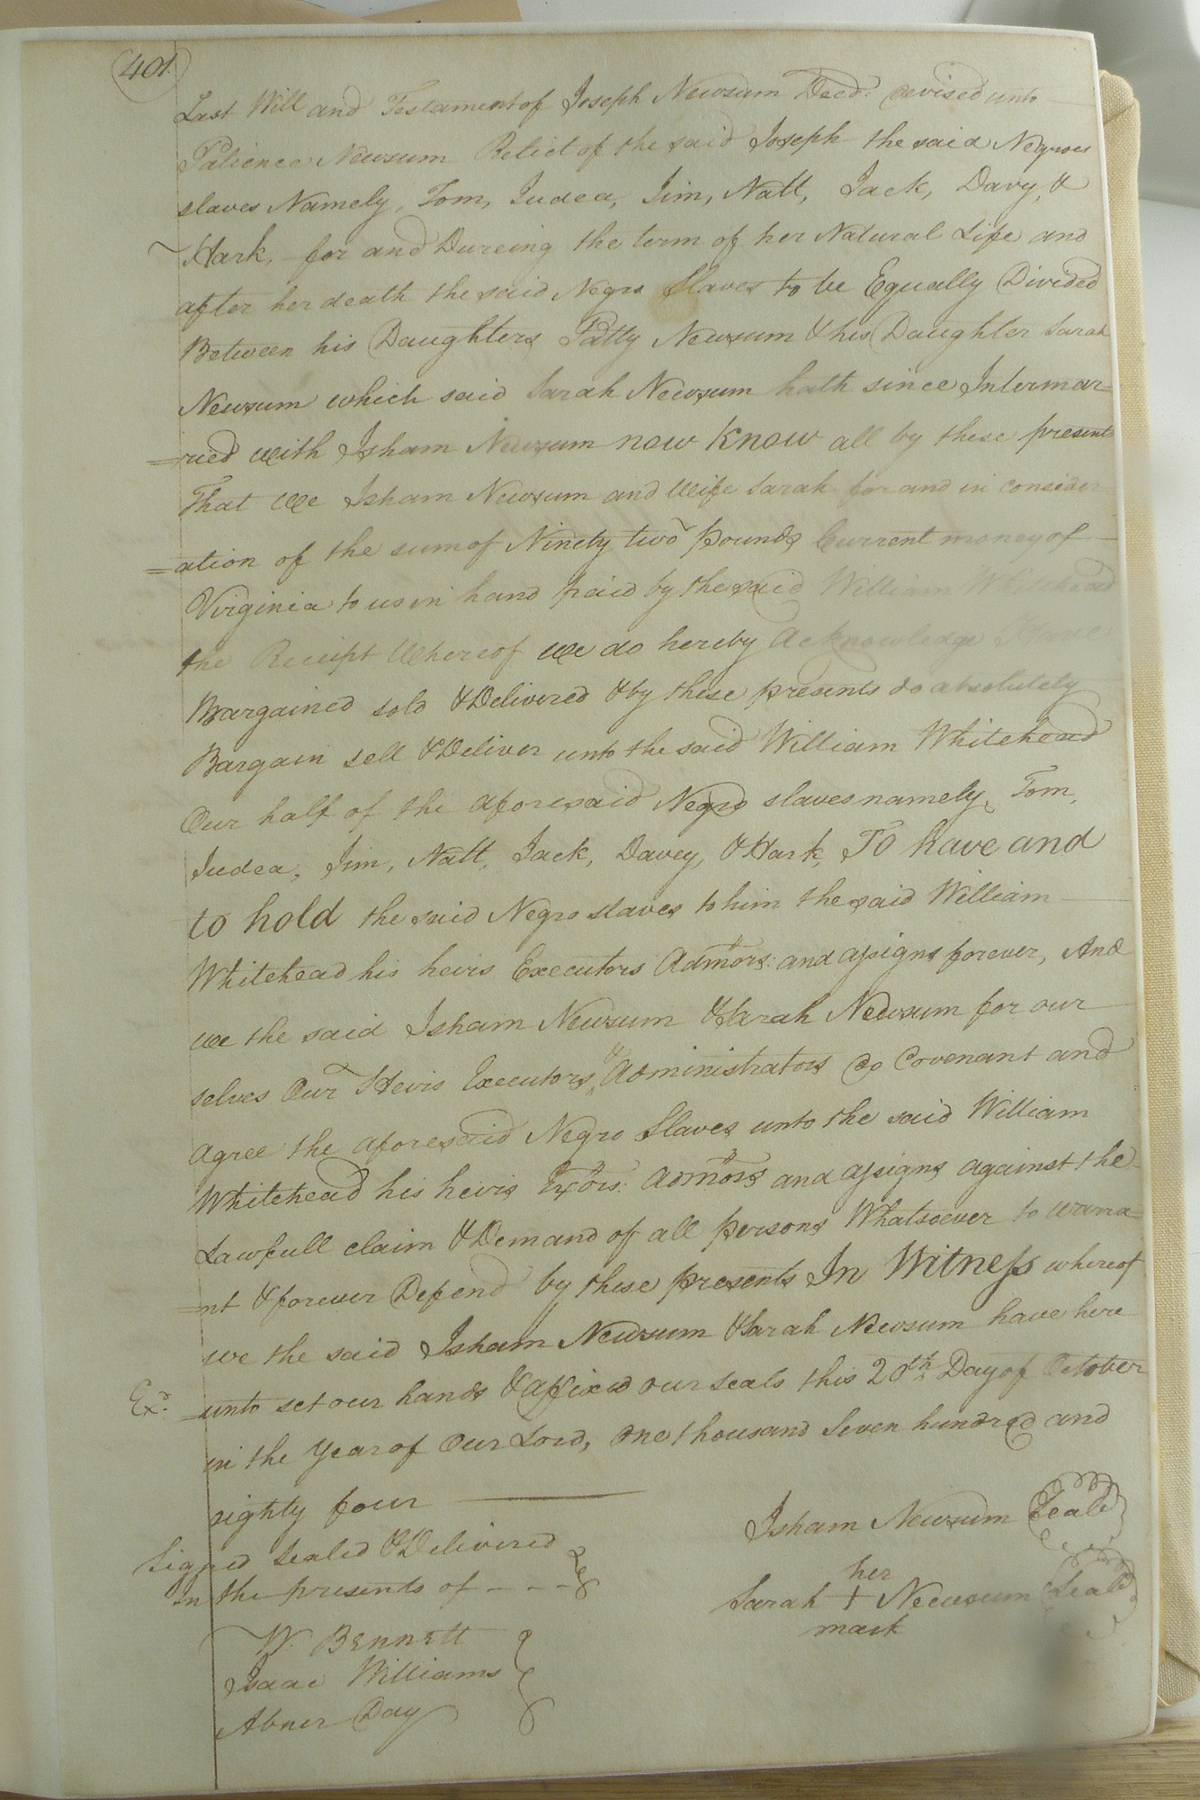 401.
Last Will and Testament of Joseph Newsum Decd. devised unto
Patience Newsum Relict of the said Joseph the said Negroes
slaves Namely, Tom, Judea, Jim, Natt, Jack, Davy, &
Hark, for and Dureing the term of her Natural Life and
after her death the said Negro Slaves to be Equally Divided
Between his Daughters Patty Newsum & his Daughter Sarah
Newsum which said Sarah Newsum hath since Intermar=
=ried with Isham Newsum now Know all by these presents
That we Isham Newsum and Wife Sarah for and in consider
=ation of the sum of Ninety two pounds Current money of
Virginia to us in hand paid by the said William Whitehead
the Receipt Whereof we do hereby Acknowledge Have
Bargained sold & Delivered & by these presents do absolutely
Bargain sell & Deliver unto the said William Whitehead
Our half of the aforesaid Negro slaves namely, Tom,
Judea, Jim, Natt, Jack, Davey, & Hark, To have and
to hold the said Negro slaves to him the said William
Whitehead his heirs Executors Admors: and assigns forever, And
we the said Isham Newsum & Sarah Newsum for our
selves Our Heirs Executors & Administrators do Covenant and
agree the aforesaid Negro Slaves unto the said William
Whitehead his heirs Exors: Admors and assigns against the
Lawfull claim & Demand of all persons Whatsoever to warra=
=nt & forever Defend by these presents In Witness whereof
we the said Isham Newsum & Sarah Newsum have here
Exd. =unto set our hands & affixed our seals this 20th Day of October
in the Year of Our Lord, One thousand Seven hundred and
eighty four
Isham Newsum Seald
Signed Sealed & Delivered
in the presents of - - -
her
Sarah + Newsum Seald
mark
W. Bennett
Isaac Williams
Abner Day